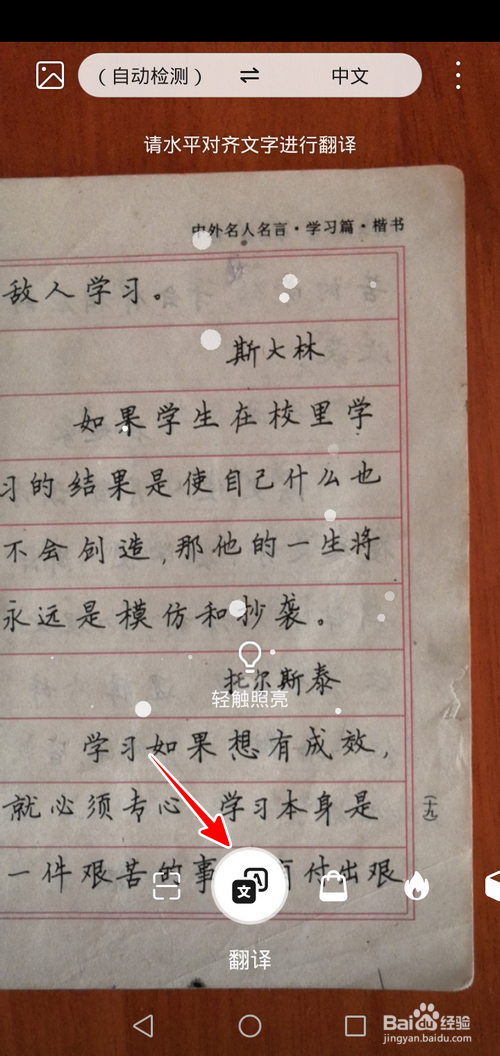 （自动检测） 中文
请水平对齐文字进行翻译
中外名人名言·学习篇·楷书
敌人学习。
斯大林
如果学生在校里学
习的结果是使自己什么也
不会创造,那他的一生将
永远是模仿和抄袭。
托尔斯泰
轻触照亮
学习如果想有成效,
就必须专心 学习本身是
一件艰苦的事 有付出艰
(十九)
文 A
翻译
Baidu经验
jingyan.baidu.com